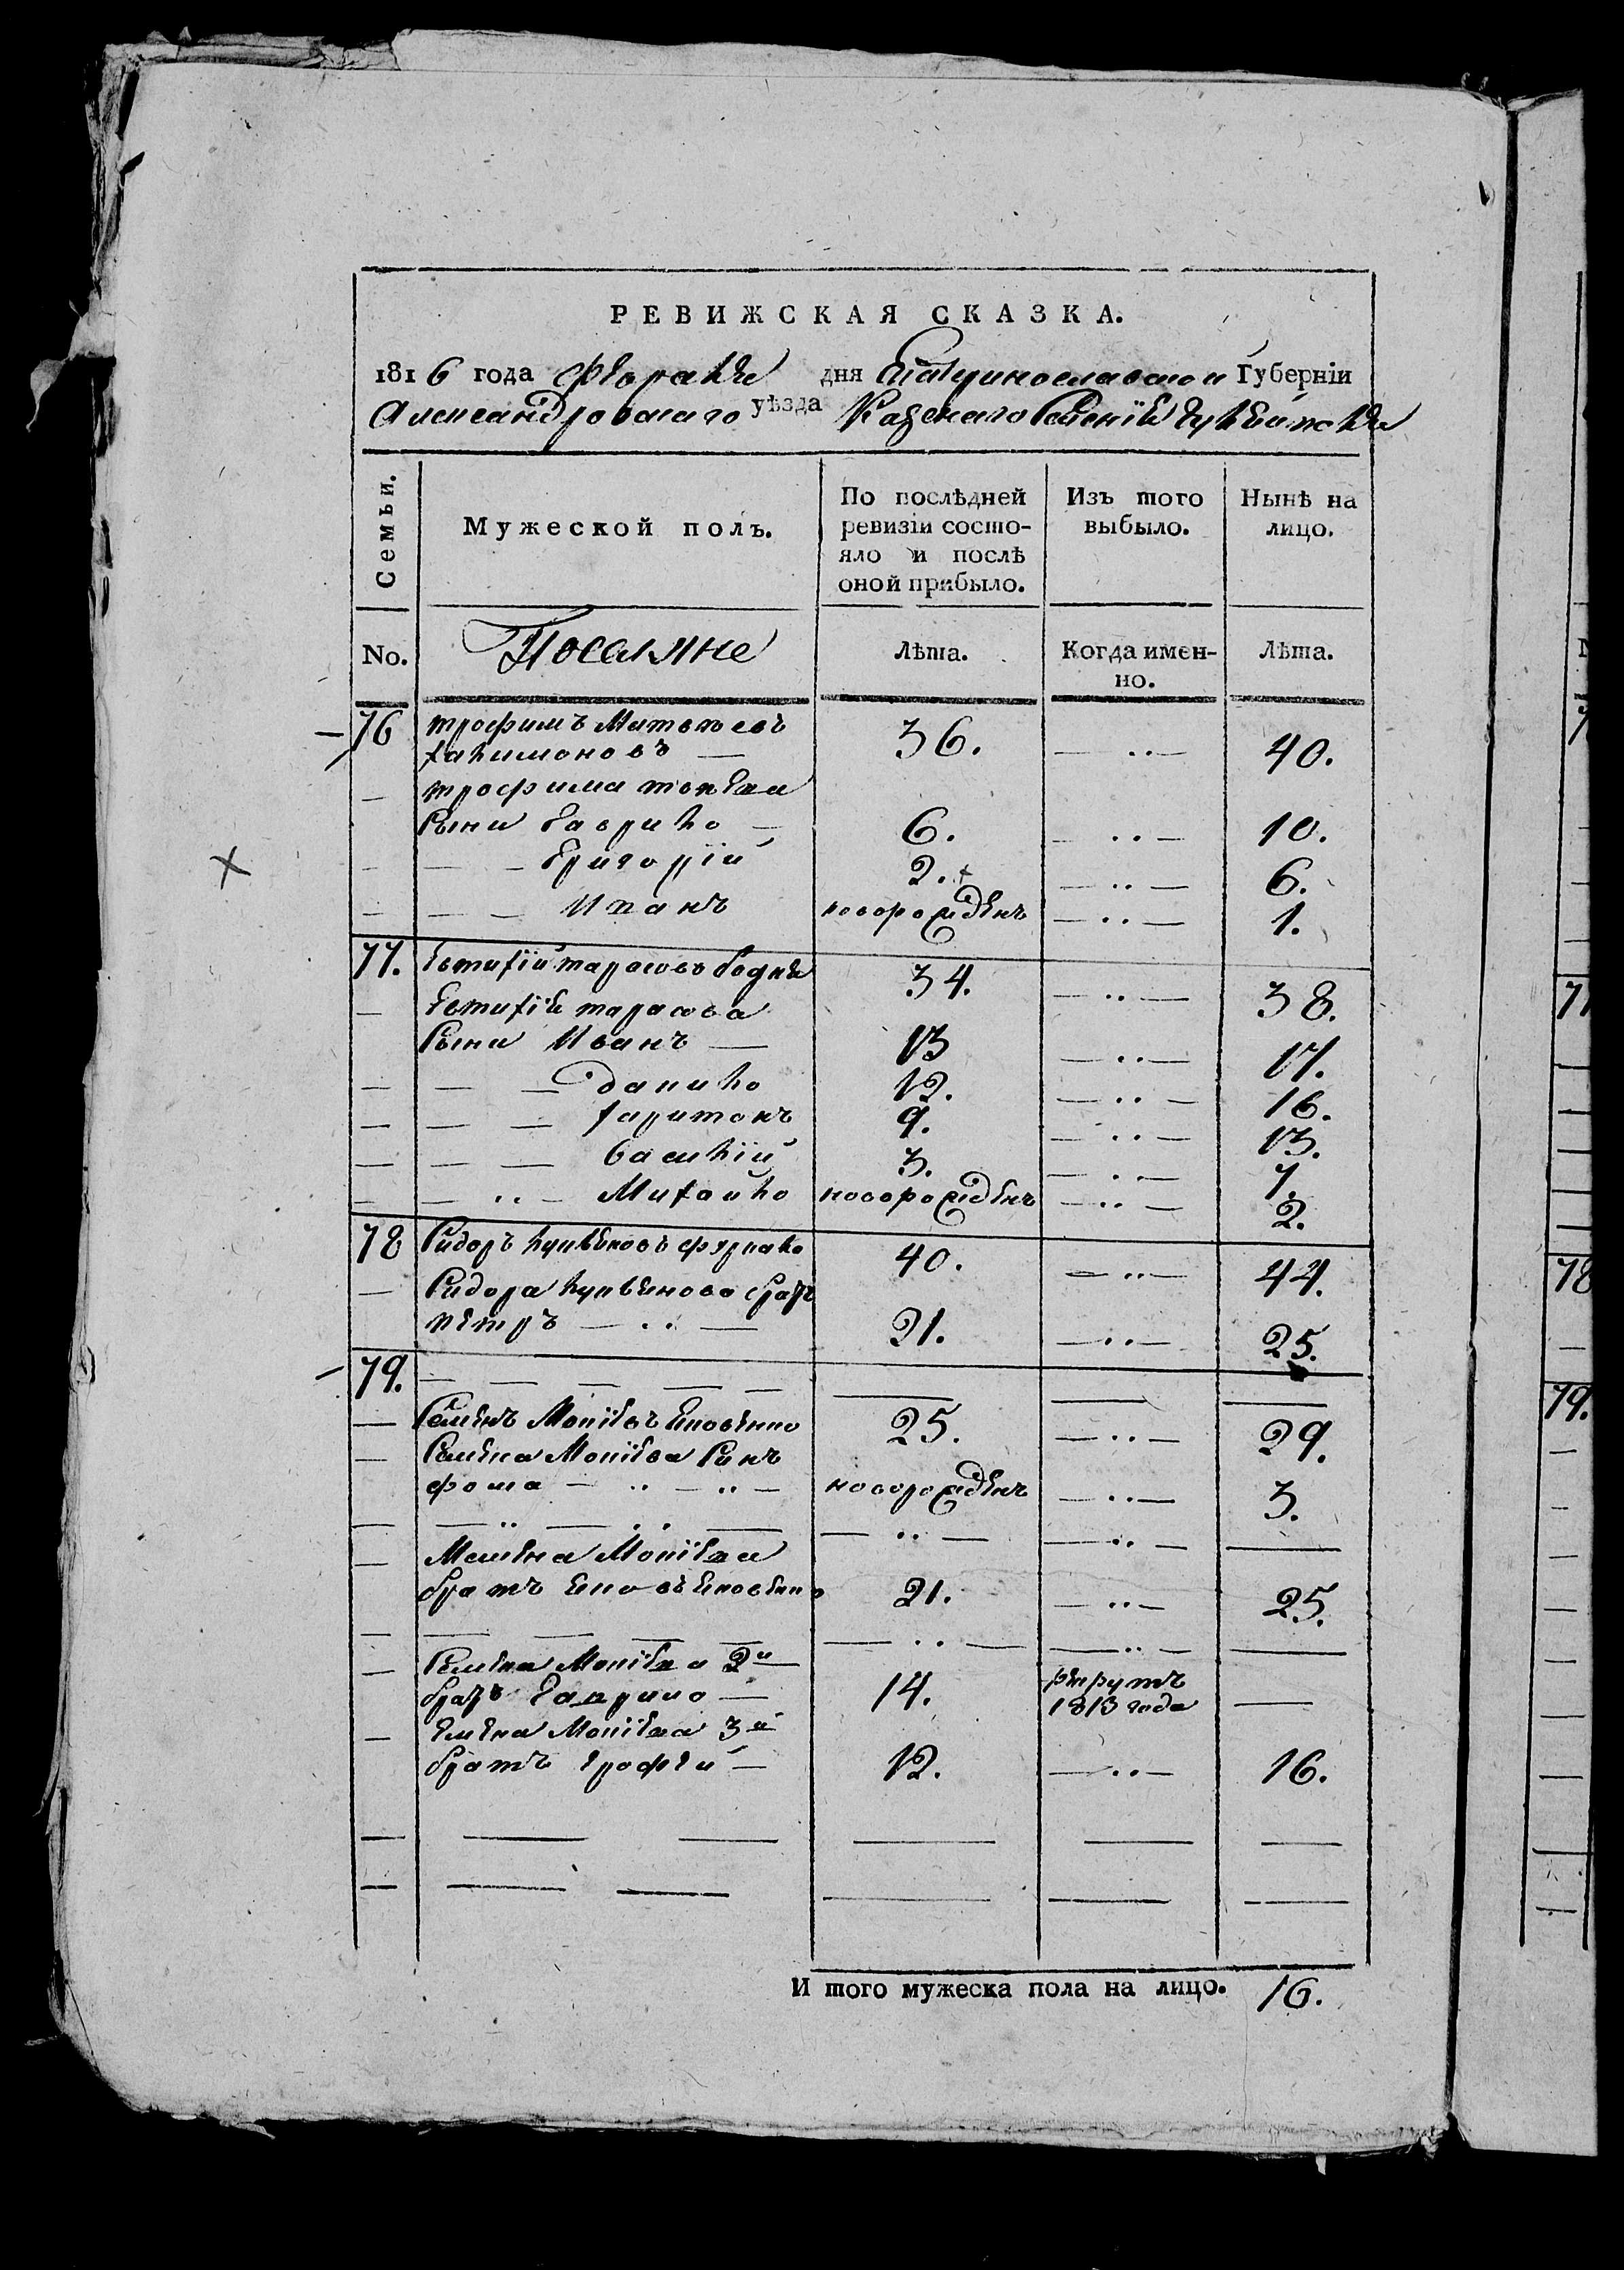 РЕВИЖСКАЯ СКАЗКА.
1816 года февраля дня Екатеринославской Губерніи
Александровскаго уѣзда Казенаго Селенія
Семьи.
Мужеской полъ.
По послѣдней ревизіи состо-
яло и послѣ
оной прибыло.
Изъ того
выбыло.
Нынѣ на
лицо.
No. Поселяне Лѣта. Когда имен-
но. Лѣта.
76 трофимъ Матвѣевъ
36. — .. — 40.
— трофима матвѣева
Сыни Гаврило — 6. — .. — 10.
— — — Григорій 2. — .. — 6.
— — — Иванъ новорожденъ — .. — 1.
77. Евтихій тарасовъ бодня 34. — .. — 38.
— Евтихія тарасова
Сыни Иванъ — 13 — .. — 17.
— — — данило 12. — .. — 16.
— — — харитонъ 9. — .. — 13.
— — — василій 3. — .. — 7.
— — .. — Михайло новорожденъ — .. — 2.
78 Сидоръ 40. — .. — 44.
— Сидора братъ
петръ — .. — 21. — .. — 25.
79. — — — — —
— Семенъ 25. — .. — 29.
— Семена Сынъ
фома — .. — .. — новорожденъ — .. — 3.
— Семена
братъ 21. — .. — 25.
— Семена 2й
братъ Гаврило — 14. рекрутъ
1813 года —
— Семена 3й
братъ ерофей — 12. — .. — 16.
И того мужеска пола на лицо. 16.